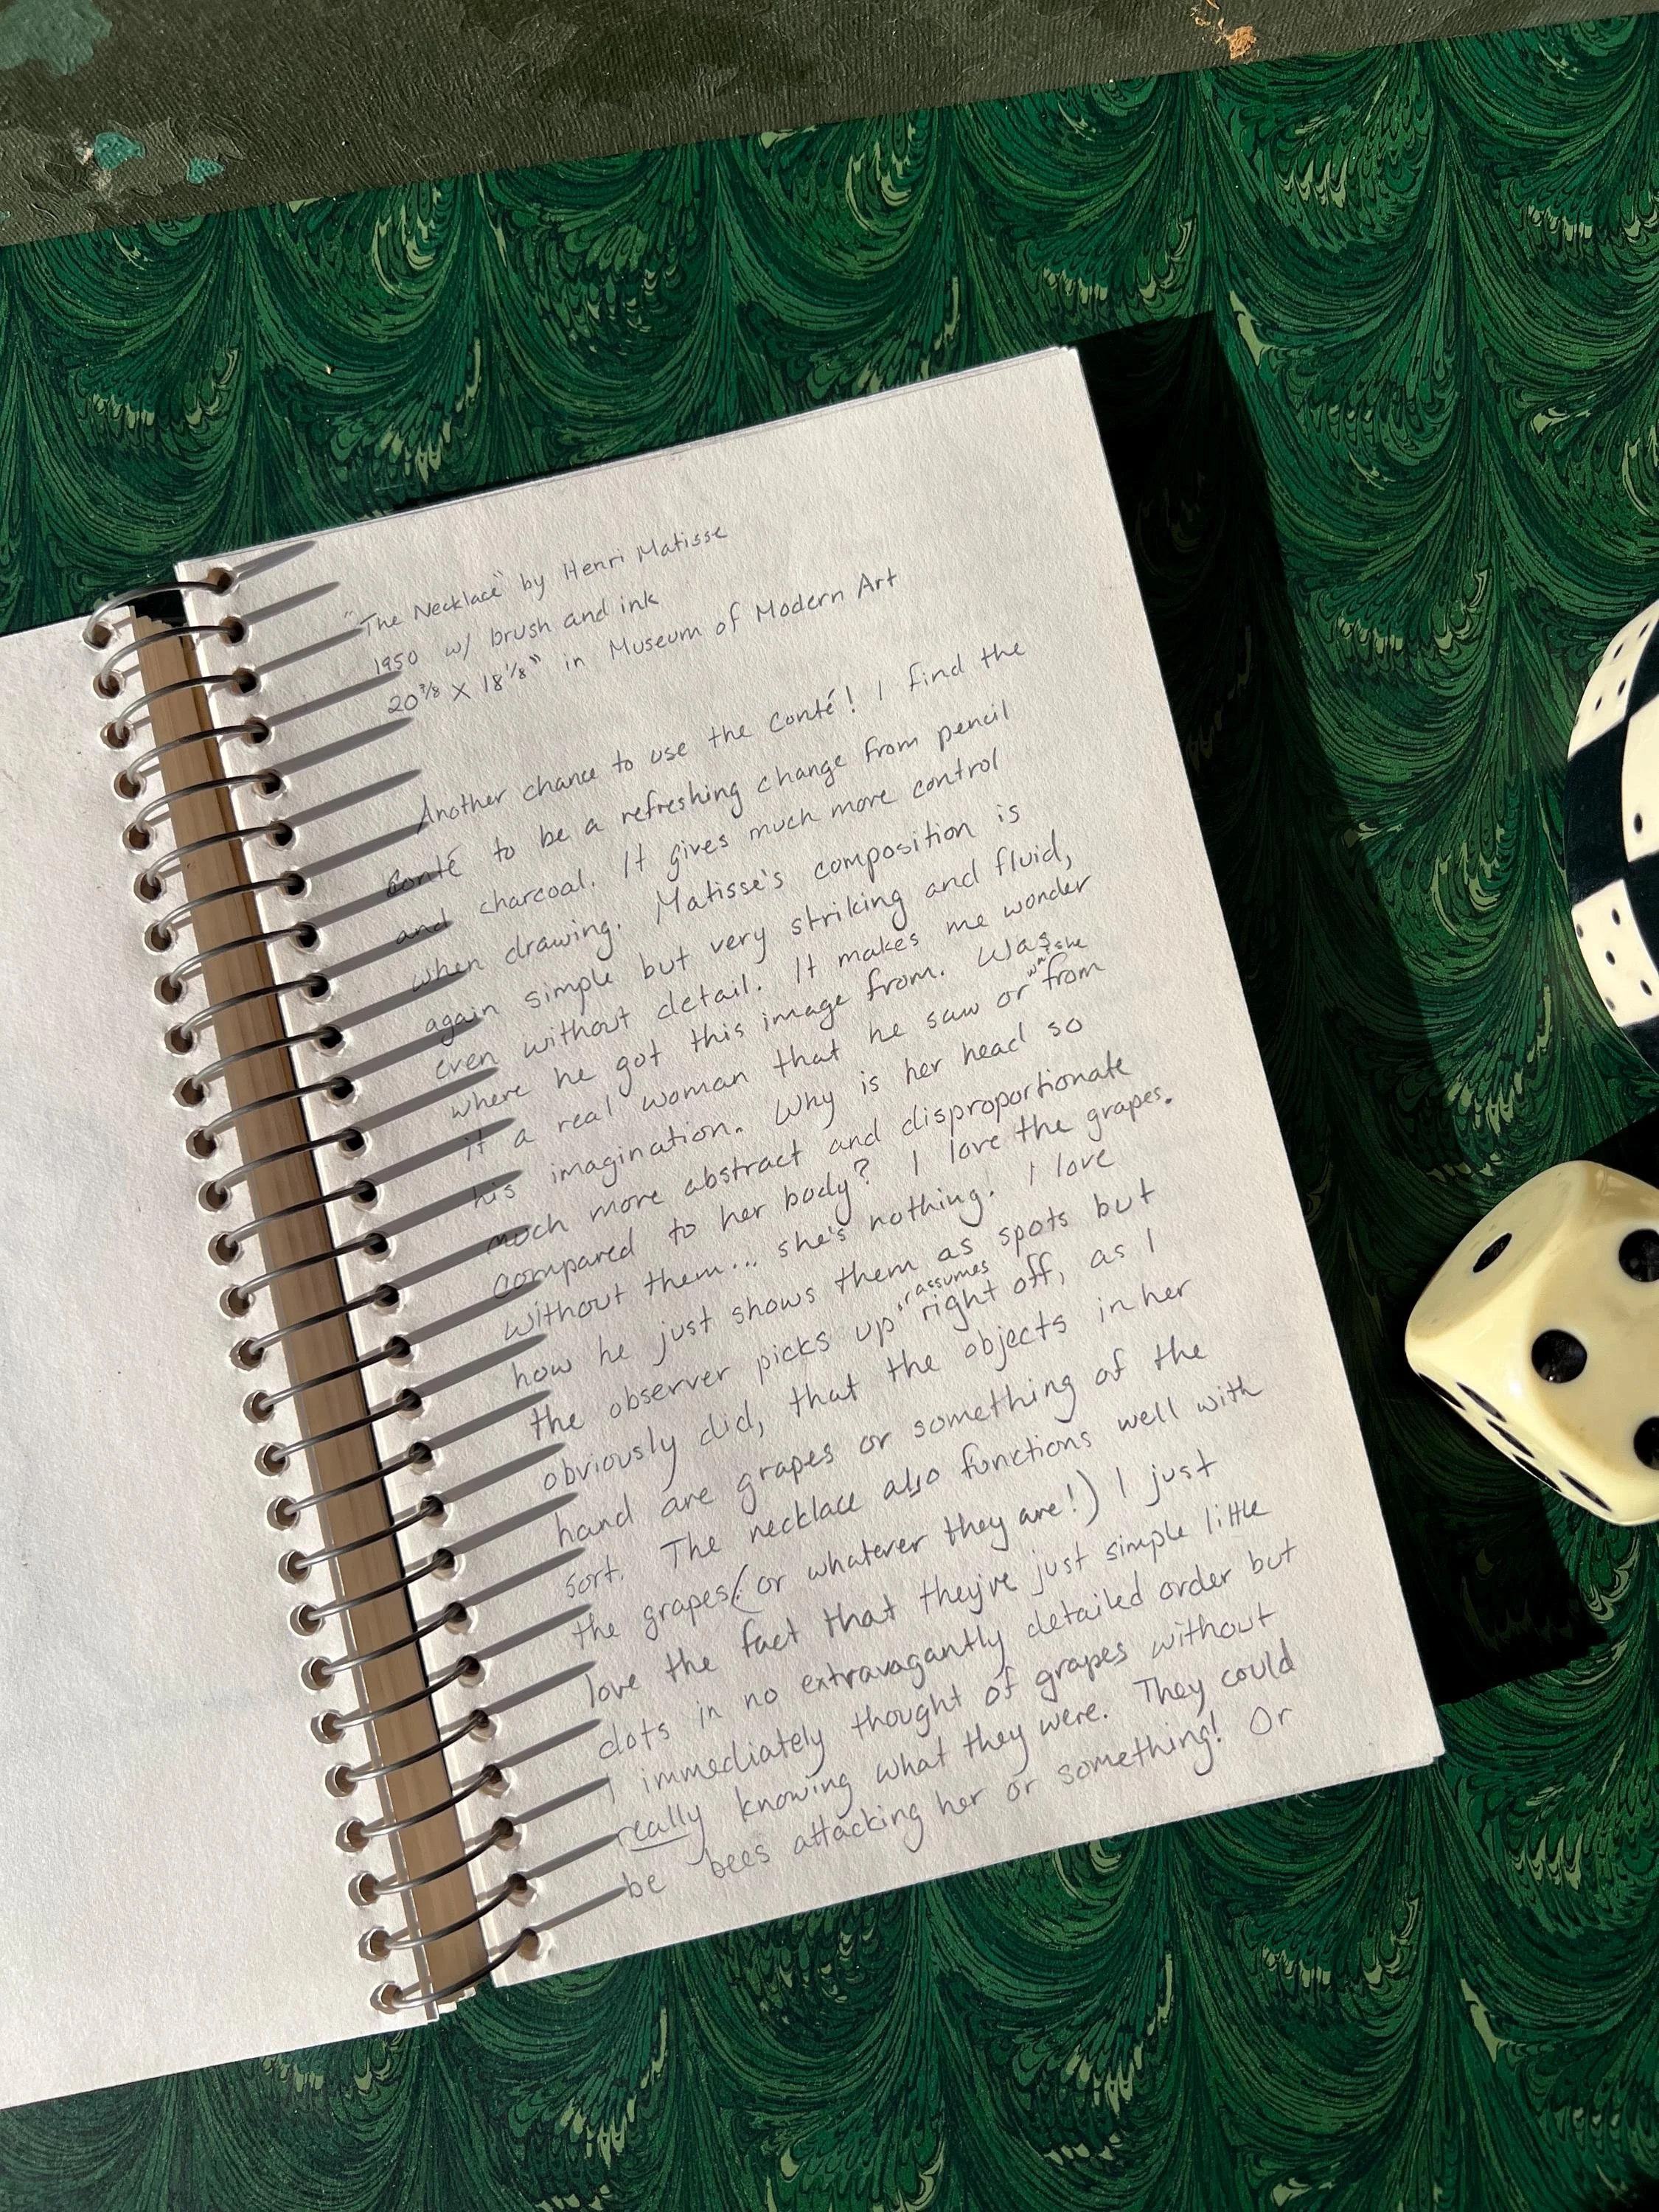 "The Necklace" by Henri Matisse
1950 w/ brush and ink
20 7/8 X 18 1/8" in Museum of Modern Art
Another chance to use the conté! I find the
conté to be a refreshing change from pencil
and charcoal. It gives much more control
when drawing. Matisse's composition is
again simple but very striking and fluid,
even without detail. It makes me wonder
where he got this image from. Was
it a real woman that he saw or was she from
his imagination. Why is her head so
much more abstract and disproportionate
compared to her body? I love the grapes.
without them... she's nothing! I love
how he just shows them as spots but
the observer picks up "assumes right off, as I
obviously did, that the objects in her
hand are grapes or something of the
sort. The necklace also functions well with
the grapes (or whatever they are!) I just
love the fact that they're just simple little
dots in no extravagantly detailed order but
I immediately thought of grapes without
really knowing what they were. They could
be bees attacking her or something! Or